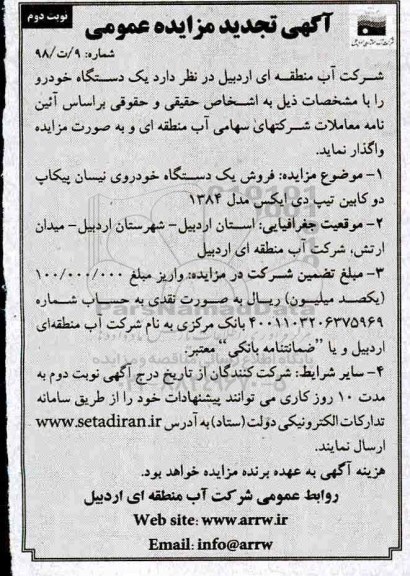 نوبت دوم
آگهی تجدید مزایده عمومی
شماره: ۹/ت/۹۸
شرکت آب منطقه ای اردبیل در نظر دارد یک دستگاه خودرو
را با مشخصات ذیل به اشخاص حقیقی و حقوقی براساس آئین
نامه معاملات شرکتهای سهامی آب منطقه ای و به صورت مزایده
واگذار نماید.
۱- موضوع مزایده: فروش یک دستگاه خودروی نیسان پیکاپ
دو کابین تیپ دی ایکس مدل ۱۳۸۴
۲- موقعیت جغرافیایی: استان اردبیل- شهرستان اردبیل- میدان
ارتش، شرکت آب منطقه ای اردبیل
۳- مبلغ تضمین شرکت در مزایده: واریز مبلغ ۱۰۰/۰۰۰/۰۰۰
(یکصد میلیون) ریال به صورت نقدی به حساب شماره
۴۰۰۱۱۰۳۲۰۶۳۷۵۹۶۹ بانک مرکزی به نام شرکت آب منطقه‌ای
اردبیل و یا "ضمانتنامه بانکی" معتبر.
۴- سایر شرایط: شرکت کنندگان از تاریخ درج آگهی نوبت دوم به
مدت ۱۰ روز کاری می توانند پیشنهادات خود را از طریق سامانه
تدارکات الکترونیکی دولت (ستاد) به آدرس www.setadiran.ir
ارسال نمایند.
هزینه آگهی به عهده برنده مزایده خواهد بود.
روابط عمومی شرکت آب منطقه ای اردبیل
Web site: www.arrw.ir
Email: info@arrw
ParsNamadData